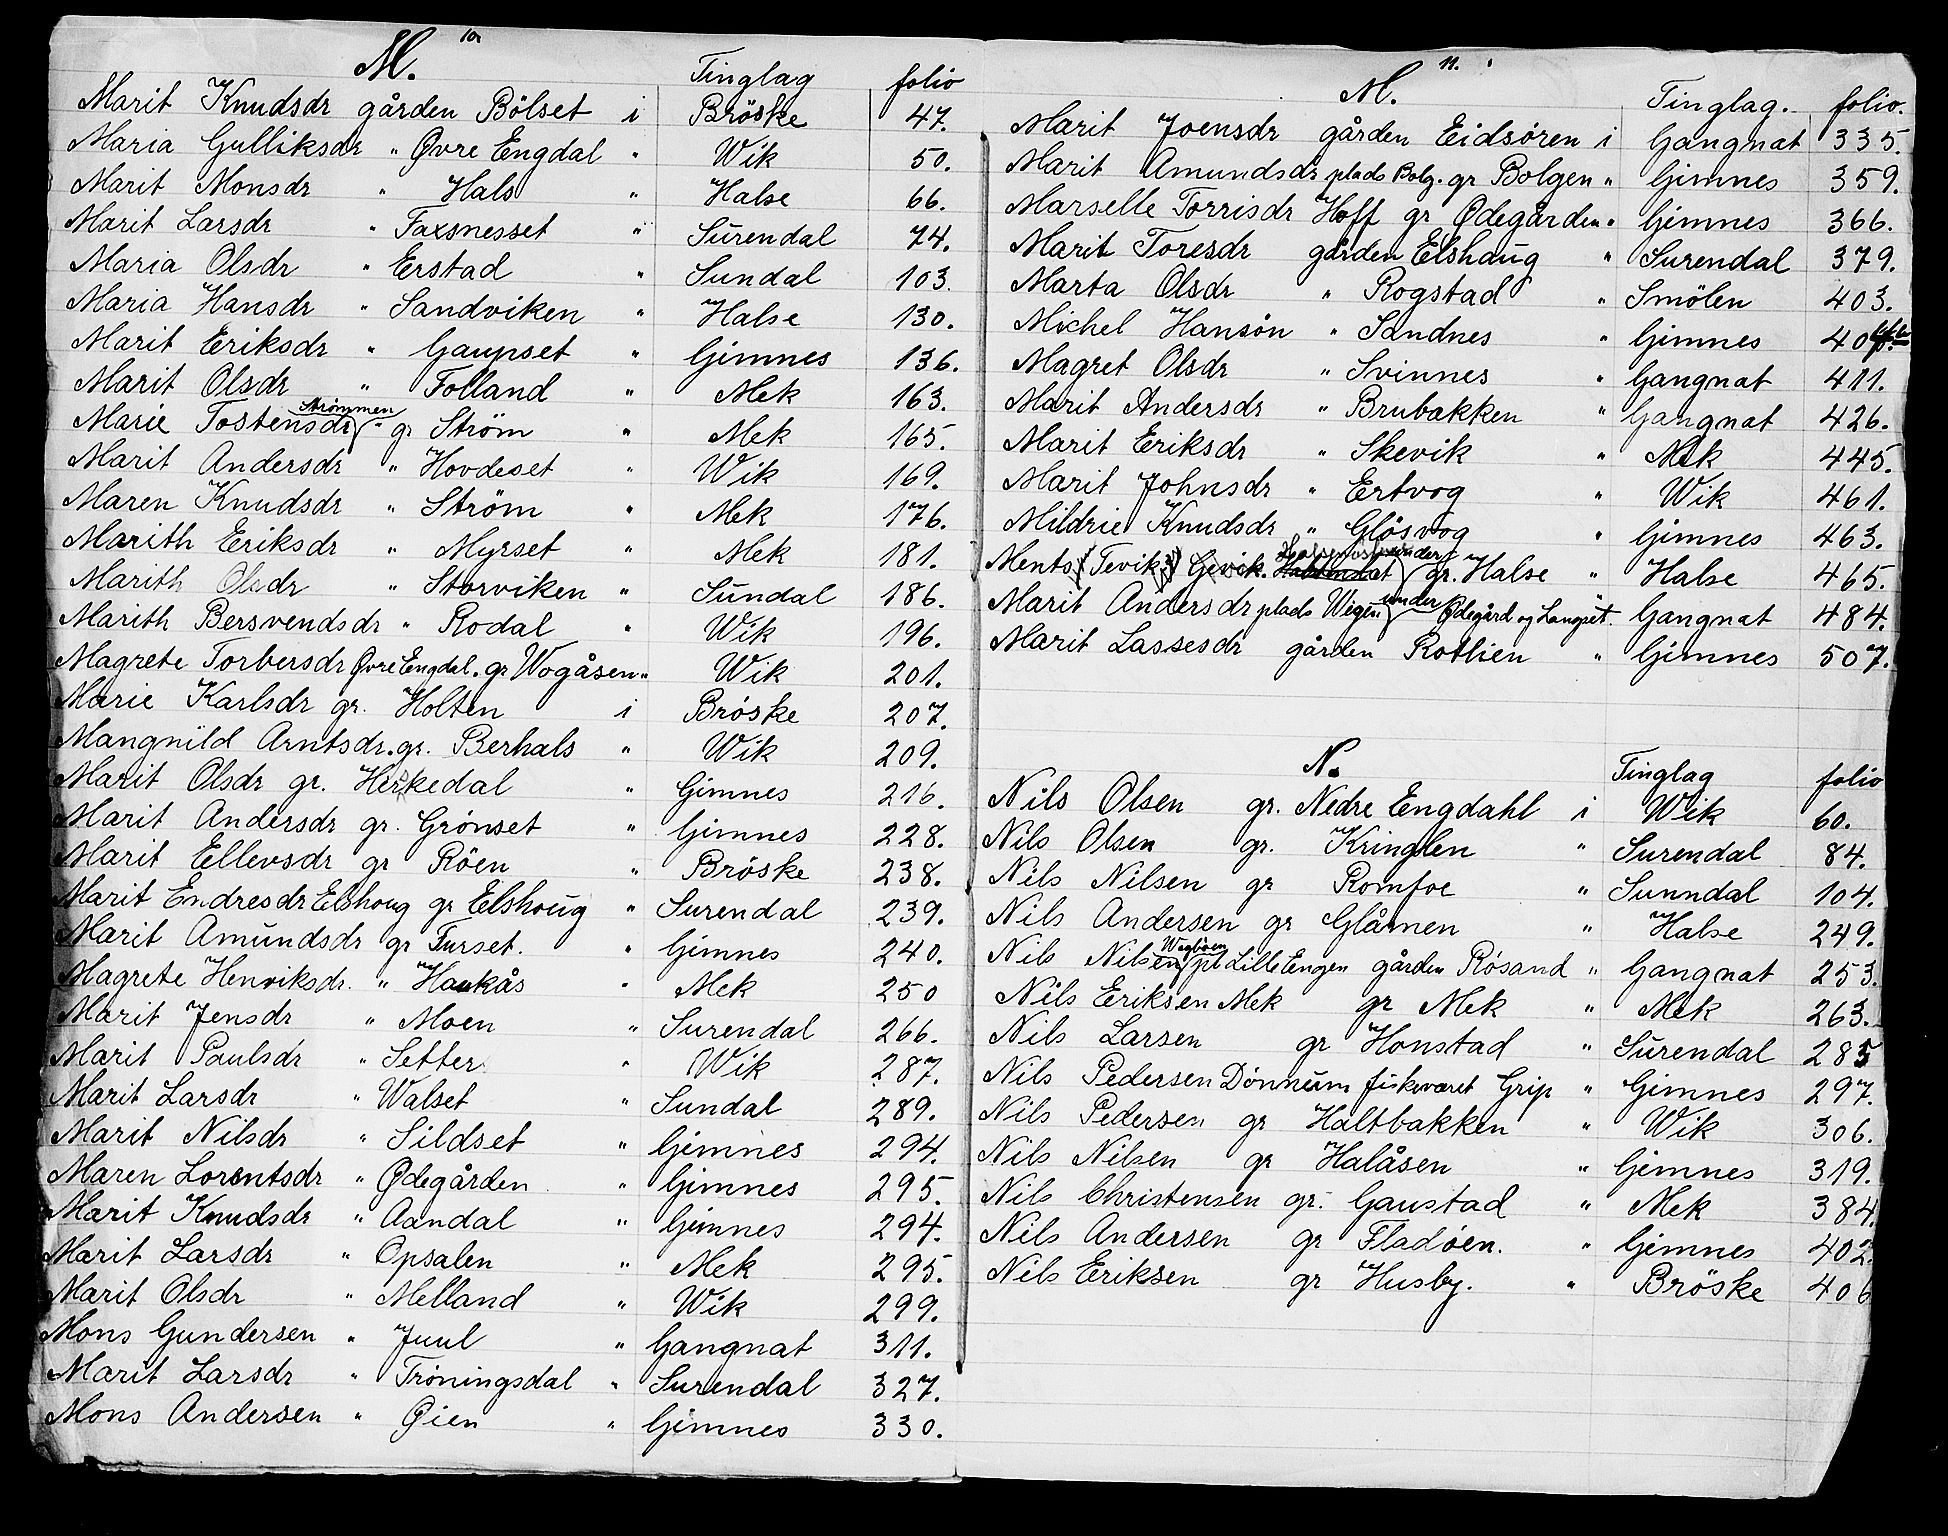 10.
M. Tinglag folio
Marit Knudsdr gården Bölset i Bröske 47.
Maria Gulliksdr " Øvre Engdal " Wik 50.
Marit Monsdr " Hals " Halse 66.
Marit Larsdr " Faxsnesset " Surendal 74.
Maria Olsdr " Erstad " Sundal 103.
Maria Hansdr " Sandviken " Halse 130.
Marit Eriksdr " Gaupset " Gimnes 136.
Marit Olsdr " Folland " Mek 163.
Marie Tostensdr Strömmen " gr Ström " Mek 165.
Marit Andersdr " Hovdeset " Wik 169.
Maren Knudsdr " Ström " Mek 176.
Marith Eriksdr " Myrset " Mek 181.
Marith Olsdr " Storviken " Sundal 186.
Marith Bersvendsdr " Rodal " Wik 196.
Magrete Torbersdr Øvre Engdal. gr Wogåsen " Wik 201.
Marie Karlsdr gr. Holten i Bröske 207.
Mangnild Arntsdr. gr. Berhals " Wik 209.
Marit Olsdr gr. Herkedal " Gimnes 216.
Marit Andersdr gr. Grönset " Gimnes 228.
Marit Ellevsdr gr Röen " Bröske 238.
Marit Endresdr Elshoug gr Elshoug " Surendal 239.
Marit Amundsdr gr Furset. " Gimnes 240.
Magrete Henriksdr. " Haukås " Mek 250
Marit Jensdr " Moen " Surendal 266.
Marit Paulsdr " Setter " Wik 287.
Marit Larsdr " Walset " Sundal 289.
Marit Nilsdr " Sildset " Gimnes 294.
Maren Lorentsdr " Ødegården " Gimnes 295.
Marit Knudsdr " Aandal " Gimnes 294.
Marit Larsdr " Opsalen " Mek 295.
Marit Olsdr " Melland " Wik 299.
Mons Gundersen " Juul " Gangnat 311.
Marit Larsdr " Tröningsdal " Surendal 327.
Mons Andersen " Øien " Gimnes 330.
11.
M. Tinglag. folio.
Marit Joensdr gården Eidsören i Gangnat 335.
Marit Amundsdr plads Bolg. gr Bolgen " Gimnes 359.
Marselle Torrisdr Hoff gr Ødegården " Gimnes 366.
Marit Toresdr gården Elshaug " Surendal 379.
Marta Olsdr " Rogstad " Smölen 403.
Michel Hansön " Sandnes " Gimnes 40
Magret Olsdr " Svinnes " Gangnat 411.
Marit Andersdr " Brubakken " Gangnat 426.
Marit Eriksdr " Skevik " Mek 445.
Marit Johnsdr " Ertvog " Wik 461.
Mildrie Knudsdr " Glösvog " Gimnes 463.
Ments Tevik Gevik. under gr. Halse " Halse 465.
Marit Andersdr plads Wegen under Ødegård og Langset. Gangnat 484.
Marit Lassesdr gården Rotlien " Gimnes 507.
N. Tinglag folio
Nils Olsen gr. Nedre Engdahl i Wik 60.
Nils Olsen gr. Kringlen " Surendal 84.
Nils Nilsen gr Romfoe " Sunndal 104.
Nils Andersen gr Glåmen " Halse 249.
Nils Nilsen pl Lille Engen gården Rösand " Gangnat 253.
Nils Eriksen Mek gr Mek " Mek 263.
Nils Larsen gr Honstad " Surendal 285
Nils Pedersen Dönnum fiskeværet Grip " Gimnes 297.
Nils Pedersen gr Haltbakken " Wik 306.
Nils Nilsen gr Halåsen " Gimnes 319.
Nils Christensen gr. Gaustad " Mek 384.
Nils Andersen gr Fladöen. " Gimnes 402.
Nils Eriksen gr Husby. " Bröske 406